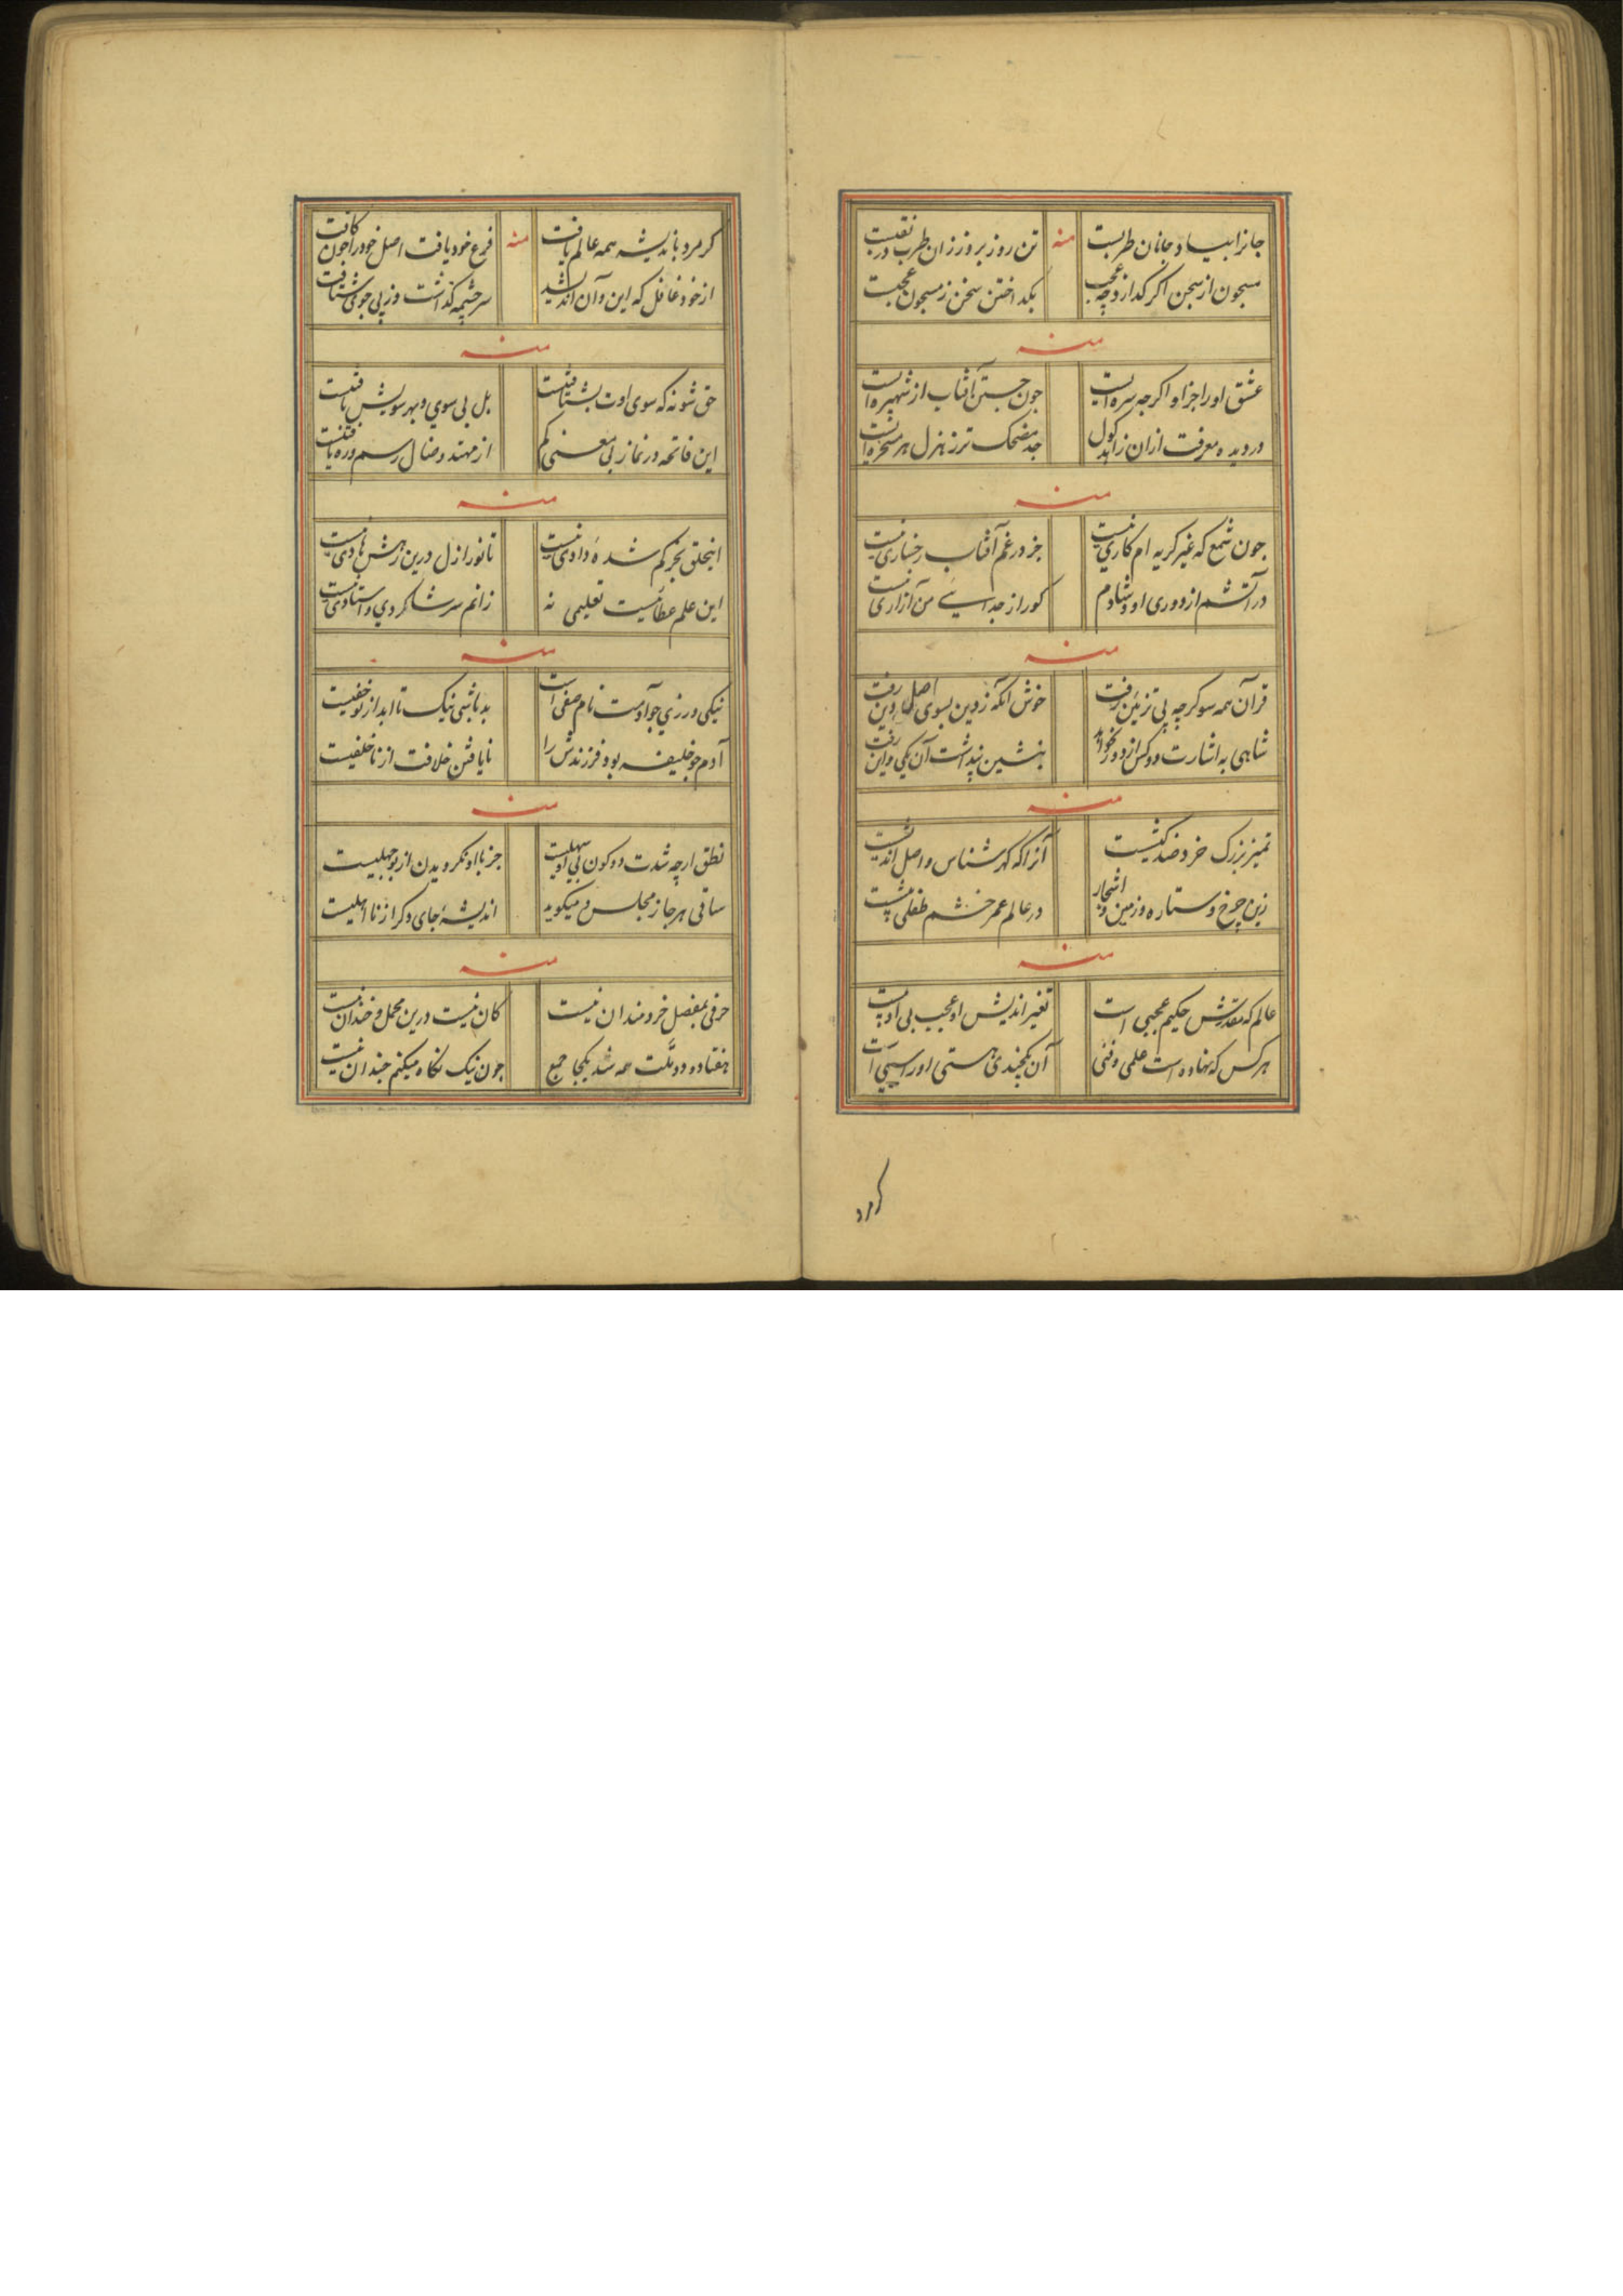 جانرا بیاد جانان طربست منه تن روز بروز زان طرب در تعبست
مسجون از سجن اکر کدازد چه عجب بکداختن سجن ز مسجون عجبست
منه
عشق او را جز او اکرچه سره ایست جون جستن آفتاب از شهپره ایست
در دیده معرفت ازان زاهد کول جد مضحک تر ز هزل هر مسخره ایست
منه
جون شمع که غیر کریه ام کاری نیست جز در غم آفتاب رخساری نیست
در آتشم از دوری او و شادم کور از جدائی من آزاری نیست
منه
قرآن همه سو کرچه پی تزئین رفت خوش آنکه ز دین بسوی اصل دین رفت
شاهی به اشارت دو کس از دور بخواند بنشین پنداشت آن یکی و این رفت
منه
تمیز بزرک خرد و ضد کیشست آنرا که کهر شناس و اصل اندیشست
زین چرخ و ستاره و زمین و اشجار در عالم عمر خشم طفلی پیشست
منه
عالم که مقدرش حکیم عجبی است تغییر اندیش او عجیب بی ادبیست
هر کس که نهاده است علمی و فنی آن یکچندی هستی او را سببی است
کرمرد
کر مرد باندیشه همه عالم یافت منه فرع خود یافت اصل خود را جون کافت
از خود غافل که این و آن اندیشید سرچشمه کذاشت وز پی جوی شتافت
منه
حق شو نه که سوی اوت بشتافتنیست بل بی سوی و بهر سویش یافتنیست
این فاتحه در نماز بی معنی کم از مهتد و ضال رسم و ره یافتنیست
منه
اینخلق بجز کم شدهٔ وادی نیست تا نور ازل درین رهش هادی نیست
این علم عطائیست تعلیمی نه زانم سر شاکردی و استادی نیست
منه
نیکی ورزی جو آدمت نام صفی است بد باشی نیک تا ابد از تو خفیست
آدم جو خلیفه بود فرزندش را نایافتن خلافت از ناخلفیست
منه
نطق ارچه شدت دو کون بی او سهلیست جز با او نکرویدن از بوجهلیست
ساقی هر جا ز مجلس و میکوید اندیشهٔ جای دکر از نااهلیست
منه
حرفی بمفصل خردمندان نیست کان نیست درین مجمل و خندان نیست
هفتاد و دو ملت همه شد یکجا جمع جون نیک نکاه میکنم جندان نیست